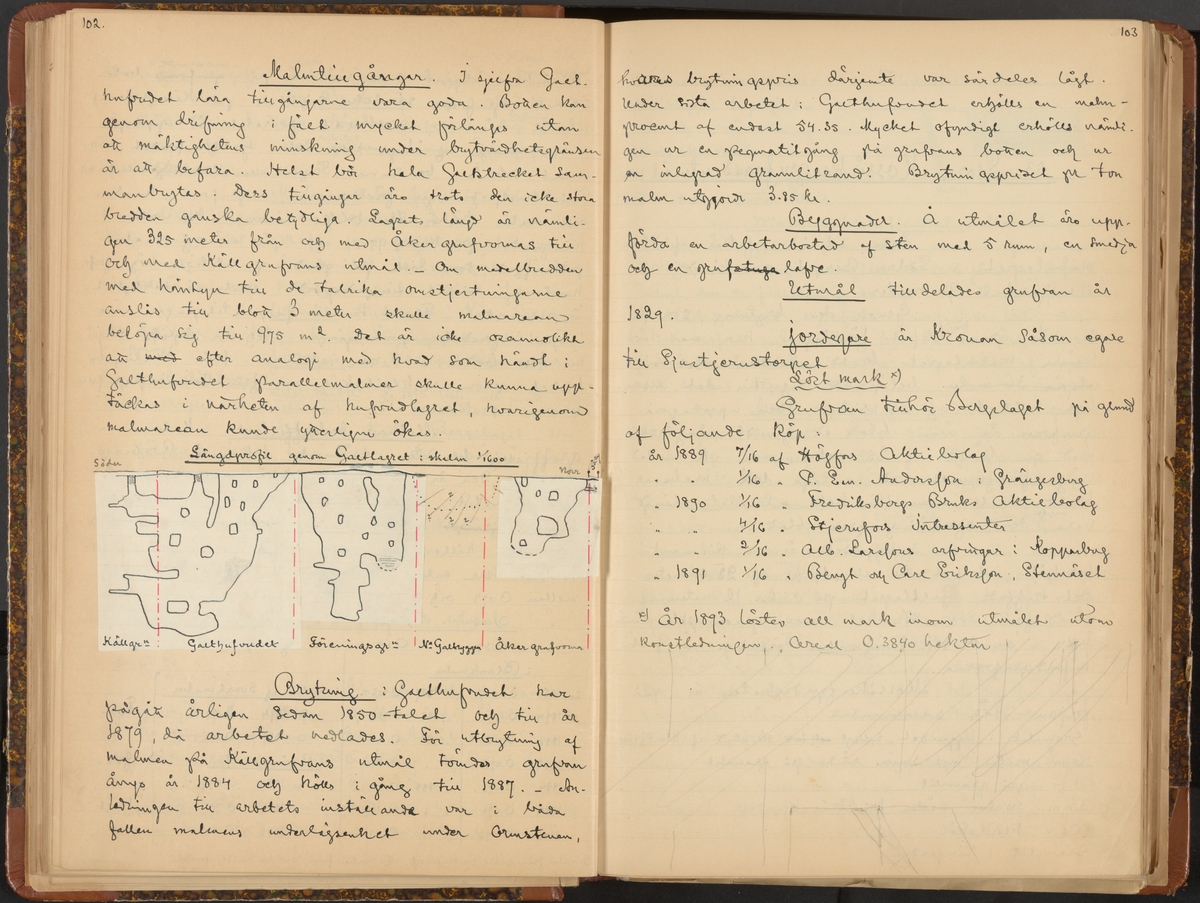 102.
Malmtillgångar. I sjelfva Galt-
hufvudet lära tillgångarne vara goda. Botten kan
genom drifning i fält mycket förlängas utan
att mäktighetens minskning under brytvärdhetsgränsen
är att befara. Helst bör hela Galtstrecket sam-
manbrytas. Dess tillgångar äro trots den icke stora
bredden ganska betydliga. Lagrets längd är nämli-
gen 325 meter från och med Åkergrufvornas till
och med Källgrufvans utmål. — Om medelbredden
med hänsyn till de talrika omstjertningarne
anslås till blott 3 meter skulle malmarean
belöpa sig till 975 m². Det är icke osannolikt
att med efter analogi med hvad som händt i
Galthufvudet parallelmalmer skulle kunna upp-
täckas i närheten af hufvudlagret, hvarigenom
malmarean kunde ytterligare ökas.
Längdprofil genom Galtlagret i skalan 1/1600
Söder
Norr
Källgr:n
Galthufvudet
Föreningsgr:n
N:a Galtryggen
Åkergrufvorna
Brytning i Galthufvudet har
pågått årligen sedan 1850-talet och till år
1879, då arbetet nedlades. För utbrytning af
malmen på Källgrufvans utmål länsades grufvan
ånyo år 1884 och hölls i gång till 1887. — An-
ledningen till arbetets inställande var i båda
fallen malmens underlägsenhet under Ormstenen,
103
hvilkas brytningspris därjemte var särdeles lågt.
Under sista arbetet i Galthufvudet erhölls en malm-
procent af endast 54.55. Mycket ofyndigt erhölls nämli-
gen ur en pegmatitgång på grufvans botten och ur
en inlagrad granulitrand. Brytningspriset pr ton
malm utgjorde 3.85 kr.
Byggnader. Å utmålet äro upp-
förda en arbetarbostad af sten med 5 rum, en smedja
och en grufstuga lafve.
Utmål tilldelades grufvan år
1829.
Jordegare är Kronan såsom egare
till Ljustjernstorpet
Löst mark x)
Grufvan tillhör Bergslaget på grund
af följande köp:
år 1889 7/16 af Högfors Aktiebolag
" " 1/16 " P. Em. Andersson i Grängesberg
" 1890 1/16 " Fredriksbergs Bruks Aktiebolag
" " 4/16 " Stjernfors Intressenter
" " 2/16 " Alb. Larssons arfvingar i Kopparberg
" 1891 1/16 " Bengt och Carl Eriksson, Stennäset
x) År 1893 löstes all mark inom utmålet utom
konstledningen, Areal 0.3840 hektar